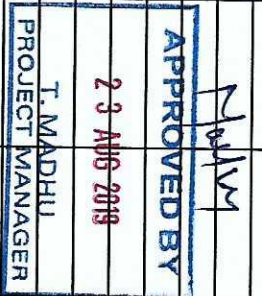 Madhu
APPROVED BY
23 AUG 2019
T. MADHU
PROJECT MANAGER